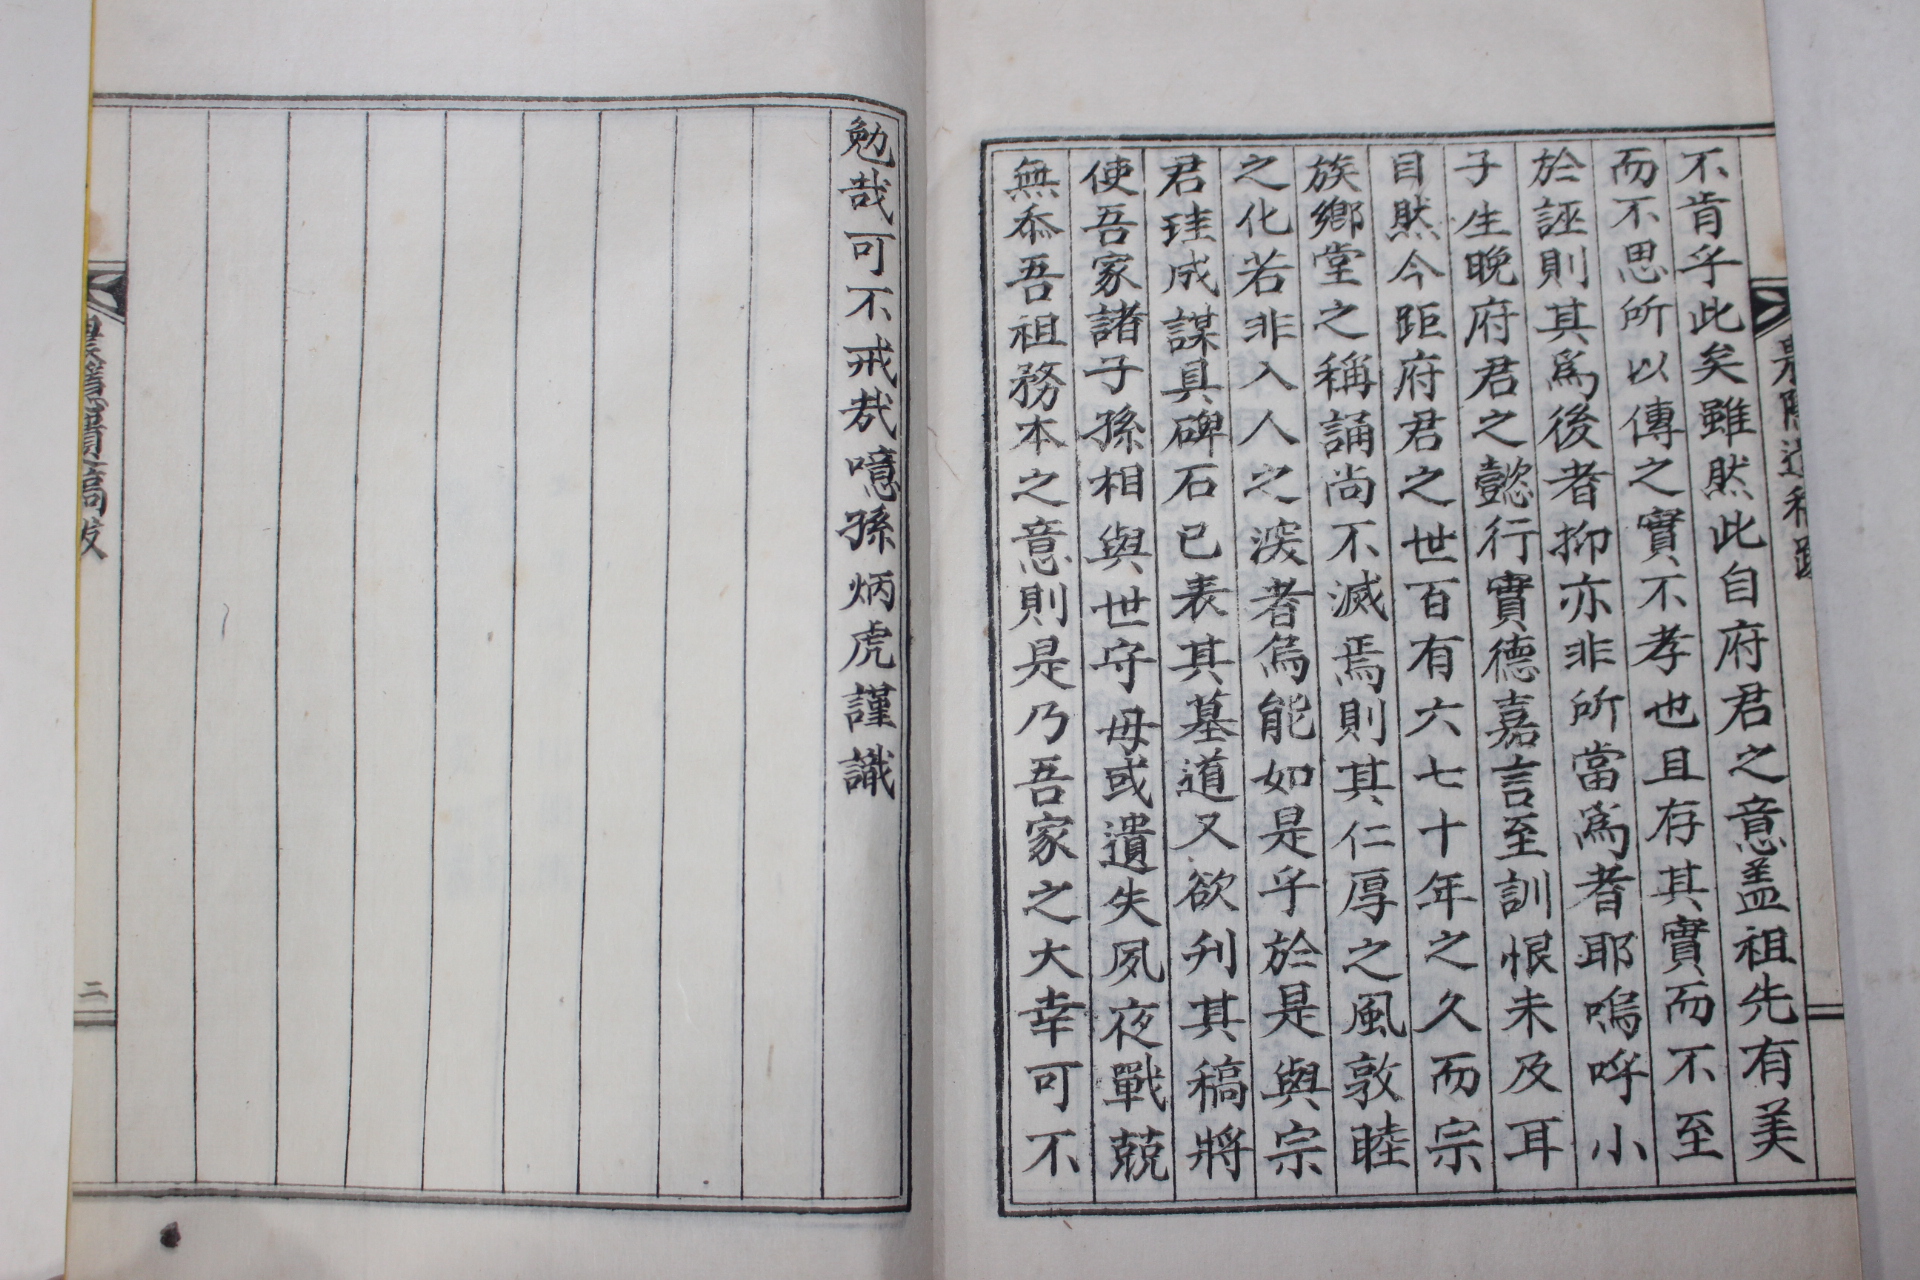 不肯乎此矣雖然此自府君之意盖祖先有美
而不思所以傳之實不孝也且存其實而不至
於誣則其爲後者抑亦非所當爲者耶嗚呼小
子生晚府君之懿行實德嘉言至訓恨未及耳
目然今距府君之世百有六七十年之久而宗
族鄉堂之稱誦尚不滅焉則其仁厚之風敦睦
之化若非入人之深者烏能如是乎於是與宗
君珪成謀具碑石已表其墓道又欲刋其稿將
使吾家諸子孫相與世守毋或遺失夙夜戰兢
無忝吾祖務本之意則是乃吾家之大幸可不
勉哉可不戒哉噫孫炳虎謹識
二